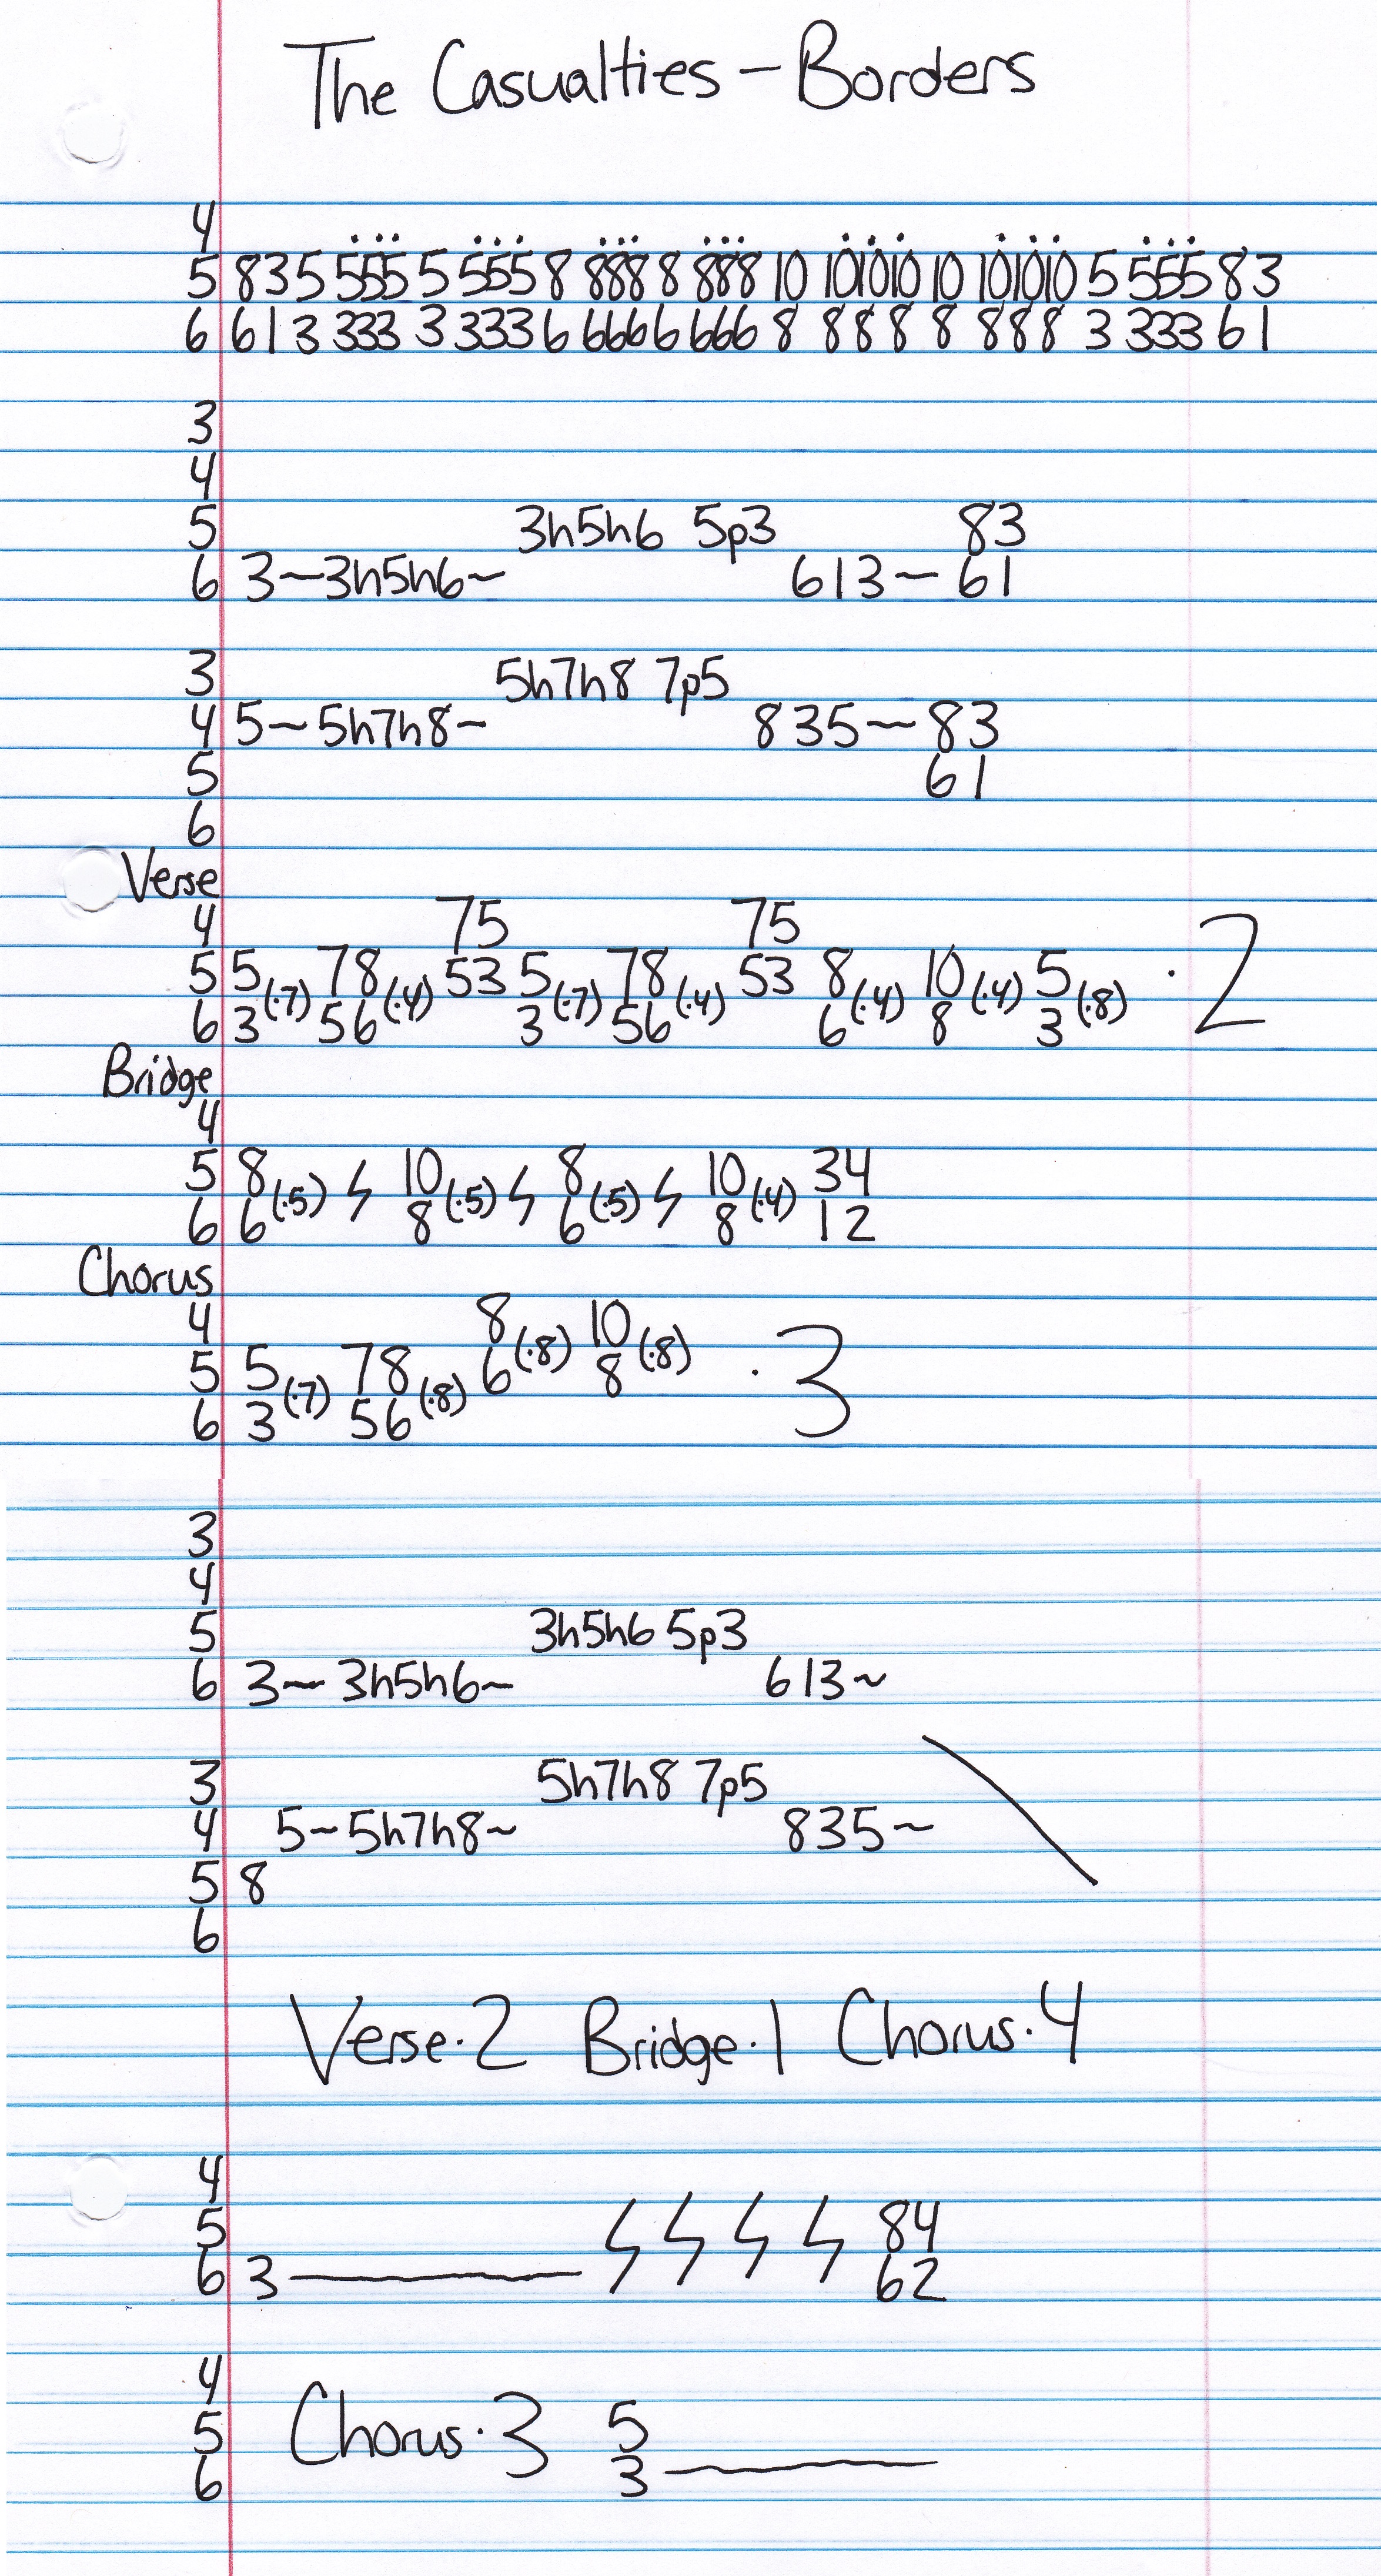 The Casualties - Borders
4
5 8 3 5 555 5 555 8 888 8 888 10 10 10 10 10 10 10 10 5 555 8 3
6 6 1 3 333 3 333 6 666 6 666 8 8 8 8 8 8 8 8 3 333 6 1
3
4
5 3h5h6 5p3 83
6 3~3h5h6~ 613~ 61
3 5h7h8 7p5
4 5~5h7h8~ 835~83
5 61
6
Verse
4 75 75
5 5(·7) 78(·4) 53 5(·7) 78(·4) 53 8(·4) 10(·4) 5(·8) ·2
6 3 56 3 56 6 8 3
Bridge
4
5 8(·5) ϟ 10(·5) ϟ 8(·5) ϟ 10(·4) 34
6 6 8 6 8 12
Chorus
4 8(·8) 10(·8)
5 5(·7) 78(·8) 6 8 ·3
6 3 56
3
4
5 3h5h6 5p3
6 3~ 3h5h6~ 613~
3 5h7h8 7p5
4 5~5h7h8~ 835~
5 8
6
Verse·2 Bridge·1 Chorus·4
4
5 ϟ ϟ ϟ ϟ 84
6 3 62
4
5 Chorus·3 5
6 3